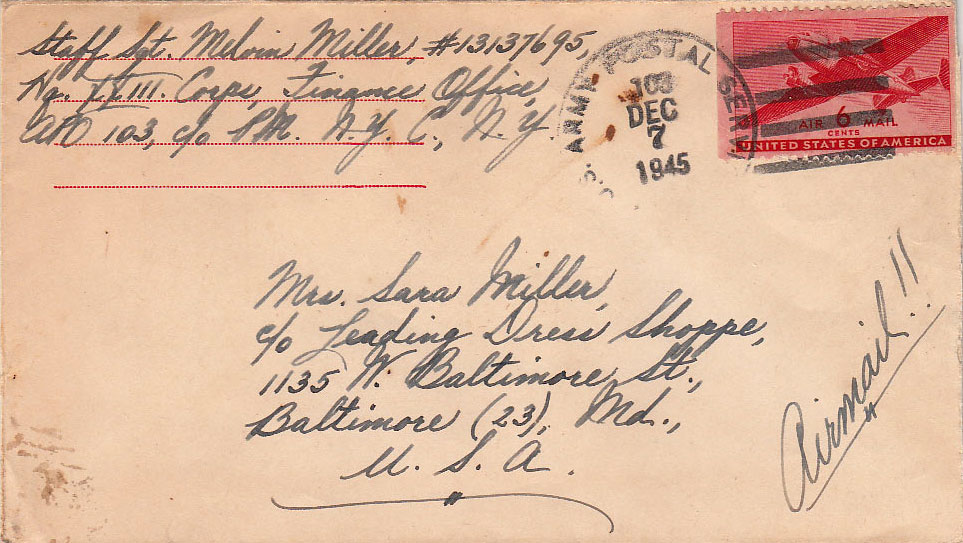 Staff Sgt. Melvin Miller, #13137695
Hq. XXIII. Corps, Finance Office,
APO 103, c/o P.M. N.Y. C., N.Y.
ARMY POSTAL SERV
U.S.
103
DEC
7
1945
AIR 6 MAIL
CENTS
UNITED STATES OF AMERICA
Mrs. Sara Miller,
c/o Leading Dress Shoppe,
1135 W. Baltimore St.,
Baltimore (23), Md.,
U. S. A.
Airmail!!